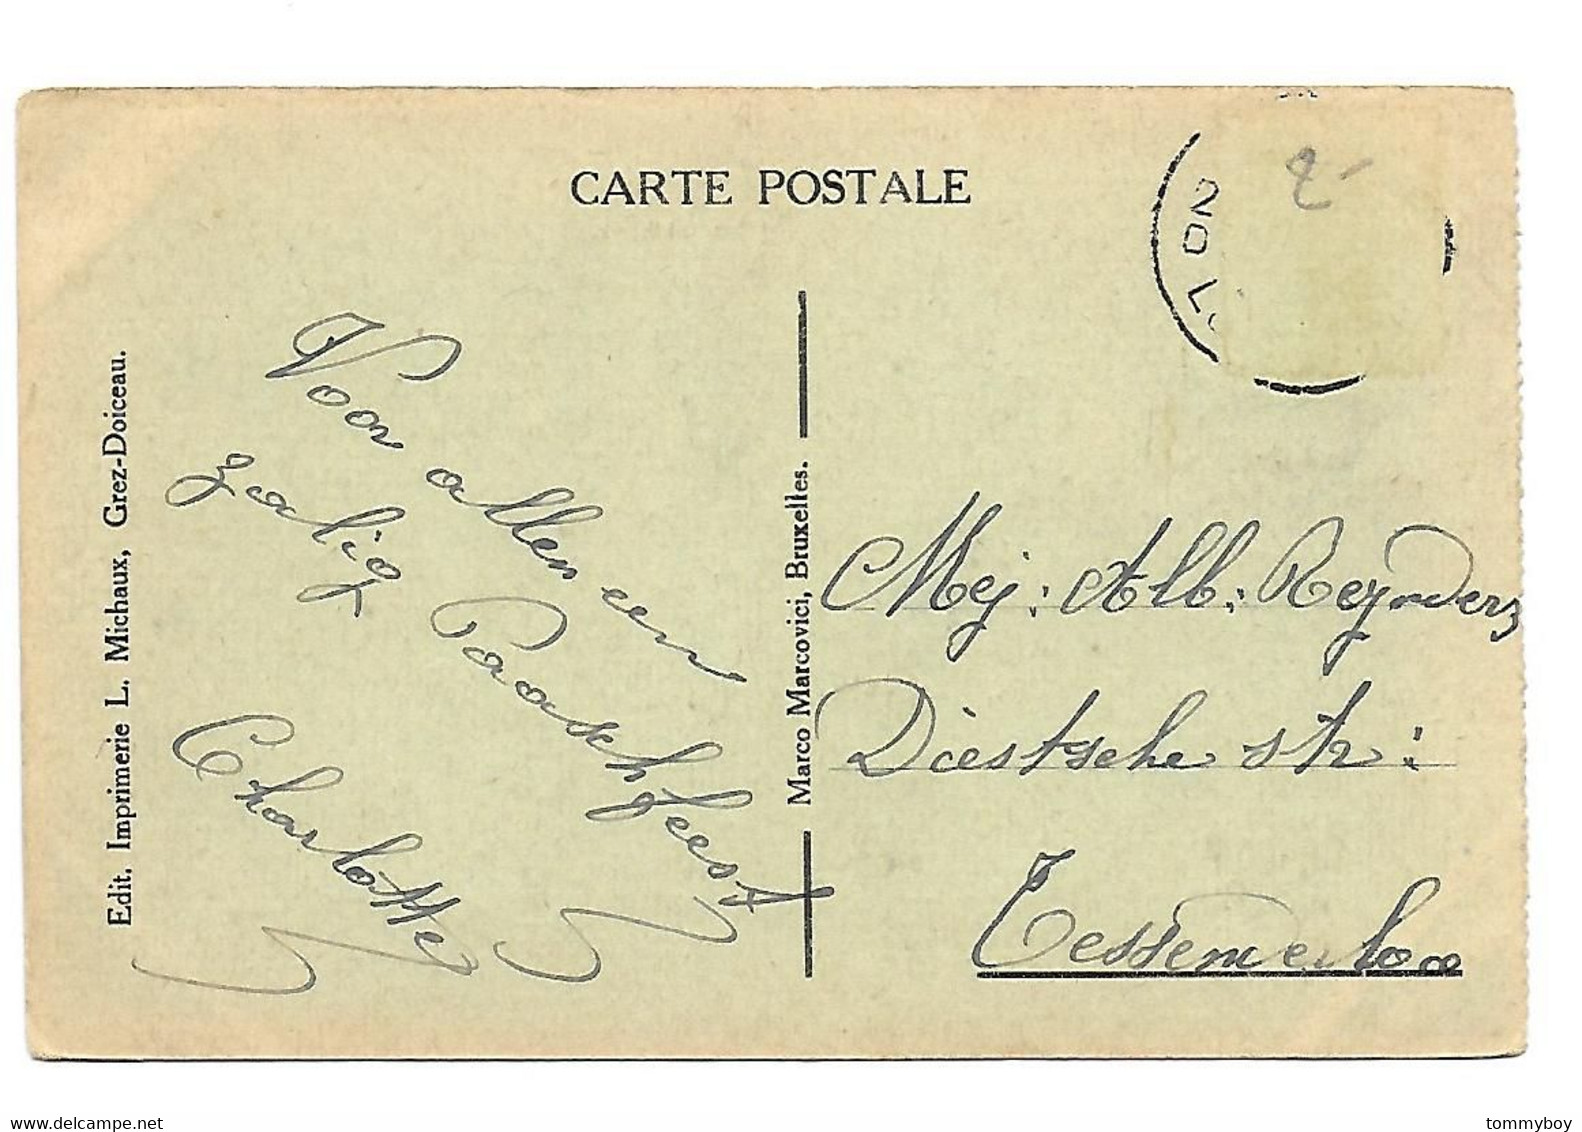 CARTE POSTALE
2
20
Voor allen een
zalig Paaschfeest
Charlotte
Mej: Alb: Reynders
Diestsche str:
Tessenderloo
Edit. Imprimerie L. Michaux, Grez-Doiceau.
Marco Marcovici, Bruxelles.
www.delcampe.net
tommyboy